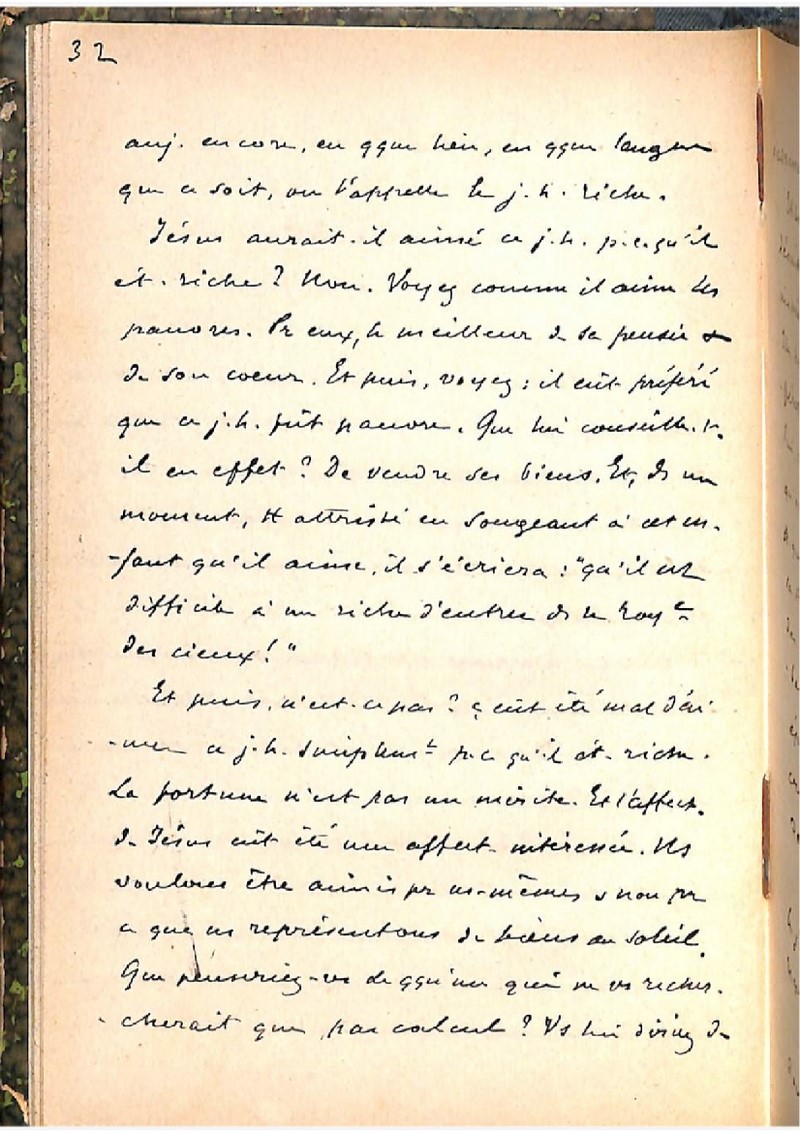 32
auj. encore, en qque lieu, en qque langue
que ce soit, on l'appelle le j.h. riche.
Jésus aurait-il aimé ce j.h. p.c.qu'il
ét. riche? Non. Voyez comme il aime les
pauvres. Pr eux, le meilleur de sa pensée &
de son coeur. Et puis, voyez: il eût préféré
que ce j.h. fût pauvre. Que lui conseille-t-
il en effet? De vendre ses biens. Et, ds un
moment, tt attristé en songeant à cet en-
-fant qu'il aime, il s'écriera: "qu'il est
difficile à un riche d'entrer ds le roy.e
des cieux!"
Et puis, n'est-ce pas? ç'eût été mal d'ai-
-mer ce j.h. simplemt p.c qu'il ét. riche.
La fortune n'est pas un mérite. Et l'affect.
de Jésus eût été une affect. intéressée. Ns
voulons être aimés pr ns-mêmes & non pr
ce que ns représentons de biens au soleil.
Que penseriez-vs de qqu'un qui ne vs recher-
-cherait que par calcul? Vs lui diriez de